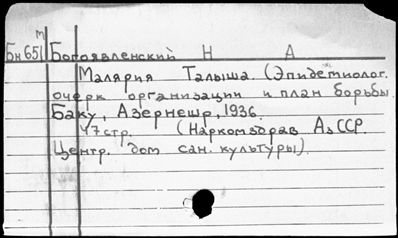 м
Бн 651 Богоявленский Н А
Малярия Талыша. (Эпидемиолог.
очерк организации и план борьбы.
Баку, Азернешр, 1936.
47 стр. (Наркомздрав АзССР.
Центр. дом сан. культуры).